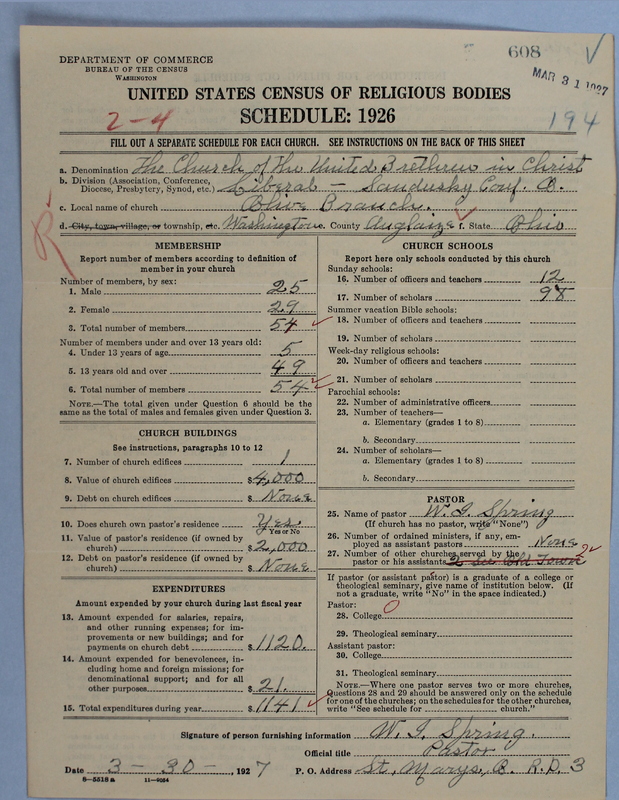 608
DEPARTMENT OF COMMERCE
BUREAU OF THE CENSUS
WASHINGTON
MAR 31 1927
UNITED STATES CENSUS OF RELIGIOUS BODIES
2-4
SCHEDULE: 1926
194
FILL OUT A SEPARATE SCHEDULE FOR EACH CHURCH. SEE INSTRUCTIONS ON THE BACK OF THIS SHEET
a. Denomination The Church of the United Brethren in Christ
b. Division (Association, Conference,
Diocese, Presbytery, Synod, etc.) Liberal - Sandusky Conf. B.
c. Local name of church Olive Branch.
d. City, town, village, or township, etc. Washington e. County Auglaize f. State Ohio
R
MEMBERSHIP
Report number of members according to definition of
member in your church
Number of members, by sex:
1. Male 25
2. Female 29
3. Total number of members 54
Number of members under and over 13 years old:
4. Under 13 years of age 5
5. 13 years old and over 49
6. Total number of members 54
NOTE.—The total given under Question 6 should be the
same as the total of males and females given under Question 3.
CHURCH BUILDINGS
See instructions, paragraphs 10 to 12
7. Number of church edifices 1
8. Value of church edifices $ 4,000
9. Debt on church edifices $ None
10. Does church own pastor's residence Yes.
Yes or No
11. Value of pastor's residence (if owned by
church) $ 2,000
12. Debt on pastor's residence (if owned by
church) $ None
EXPENDITURES
Amount expended by your church during last fiscal year
13. Amount expended for salaries, repairs,
and other running expenses; for im-
provements or new buildings; and for
payments on church debt $ 1120.
14. Amount expended for benevolences, in-
cluding home and foreign missions; for
denominational support; and for all
other purposes $ 21.
15. Total expenditures during year $ 1141
CHURCH SCHOOLS
Report here only schools conducted by this church
Sunday schools:
16. Number of officers and teachers 12
17. Number of scholars 98
Summer vacation Bible schools:
18. Number of officers and teachers
19. Number of scholars
Week-day religious schools:
20. Number of officers and teachers
21. Number of scholars
Parochial schools:
22. Number of administrative officers
23. Number of teachers—
a. Elementary (grades 1 to 8)
b. Secondary
24. Number of scholars—
a. Elementary (grades 1 to 8)
b. Secondary
PASTOR
25. Name of pastor W. I. Spring
(If church has no pastor, write "None")
26. Number of ordained ministers, if any, em-
ployed as assistant pastors None
27. Number of other churches served by the 2
pastor or his assistants 2 See Old Town
If pastor (or assistant pastor) is a graduate of a college or
theological seminary, give name of institution below. (If
not a graduate, write "No" in the space indicated.)
Pastor:
28. College O
29. Theological seminary
Assistant pastor:
30. College
31. Theological seminary
NOTE.—Where one pastor serves two or more churches,
Questions 28 and 29 should be answered only on the schedule
for one of the churches; on the schedules for the other churches,
write "See schedule for church."
Signature of person furnishing information W. I. Spring.
Official title Pastor
Date 3-30-, 1927 P. O. Address St. Marys, O. R.D. 3
8—5518a 11—9084